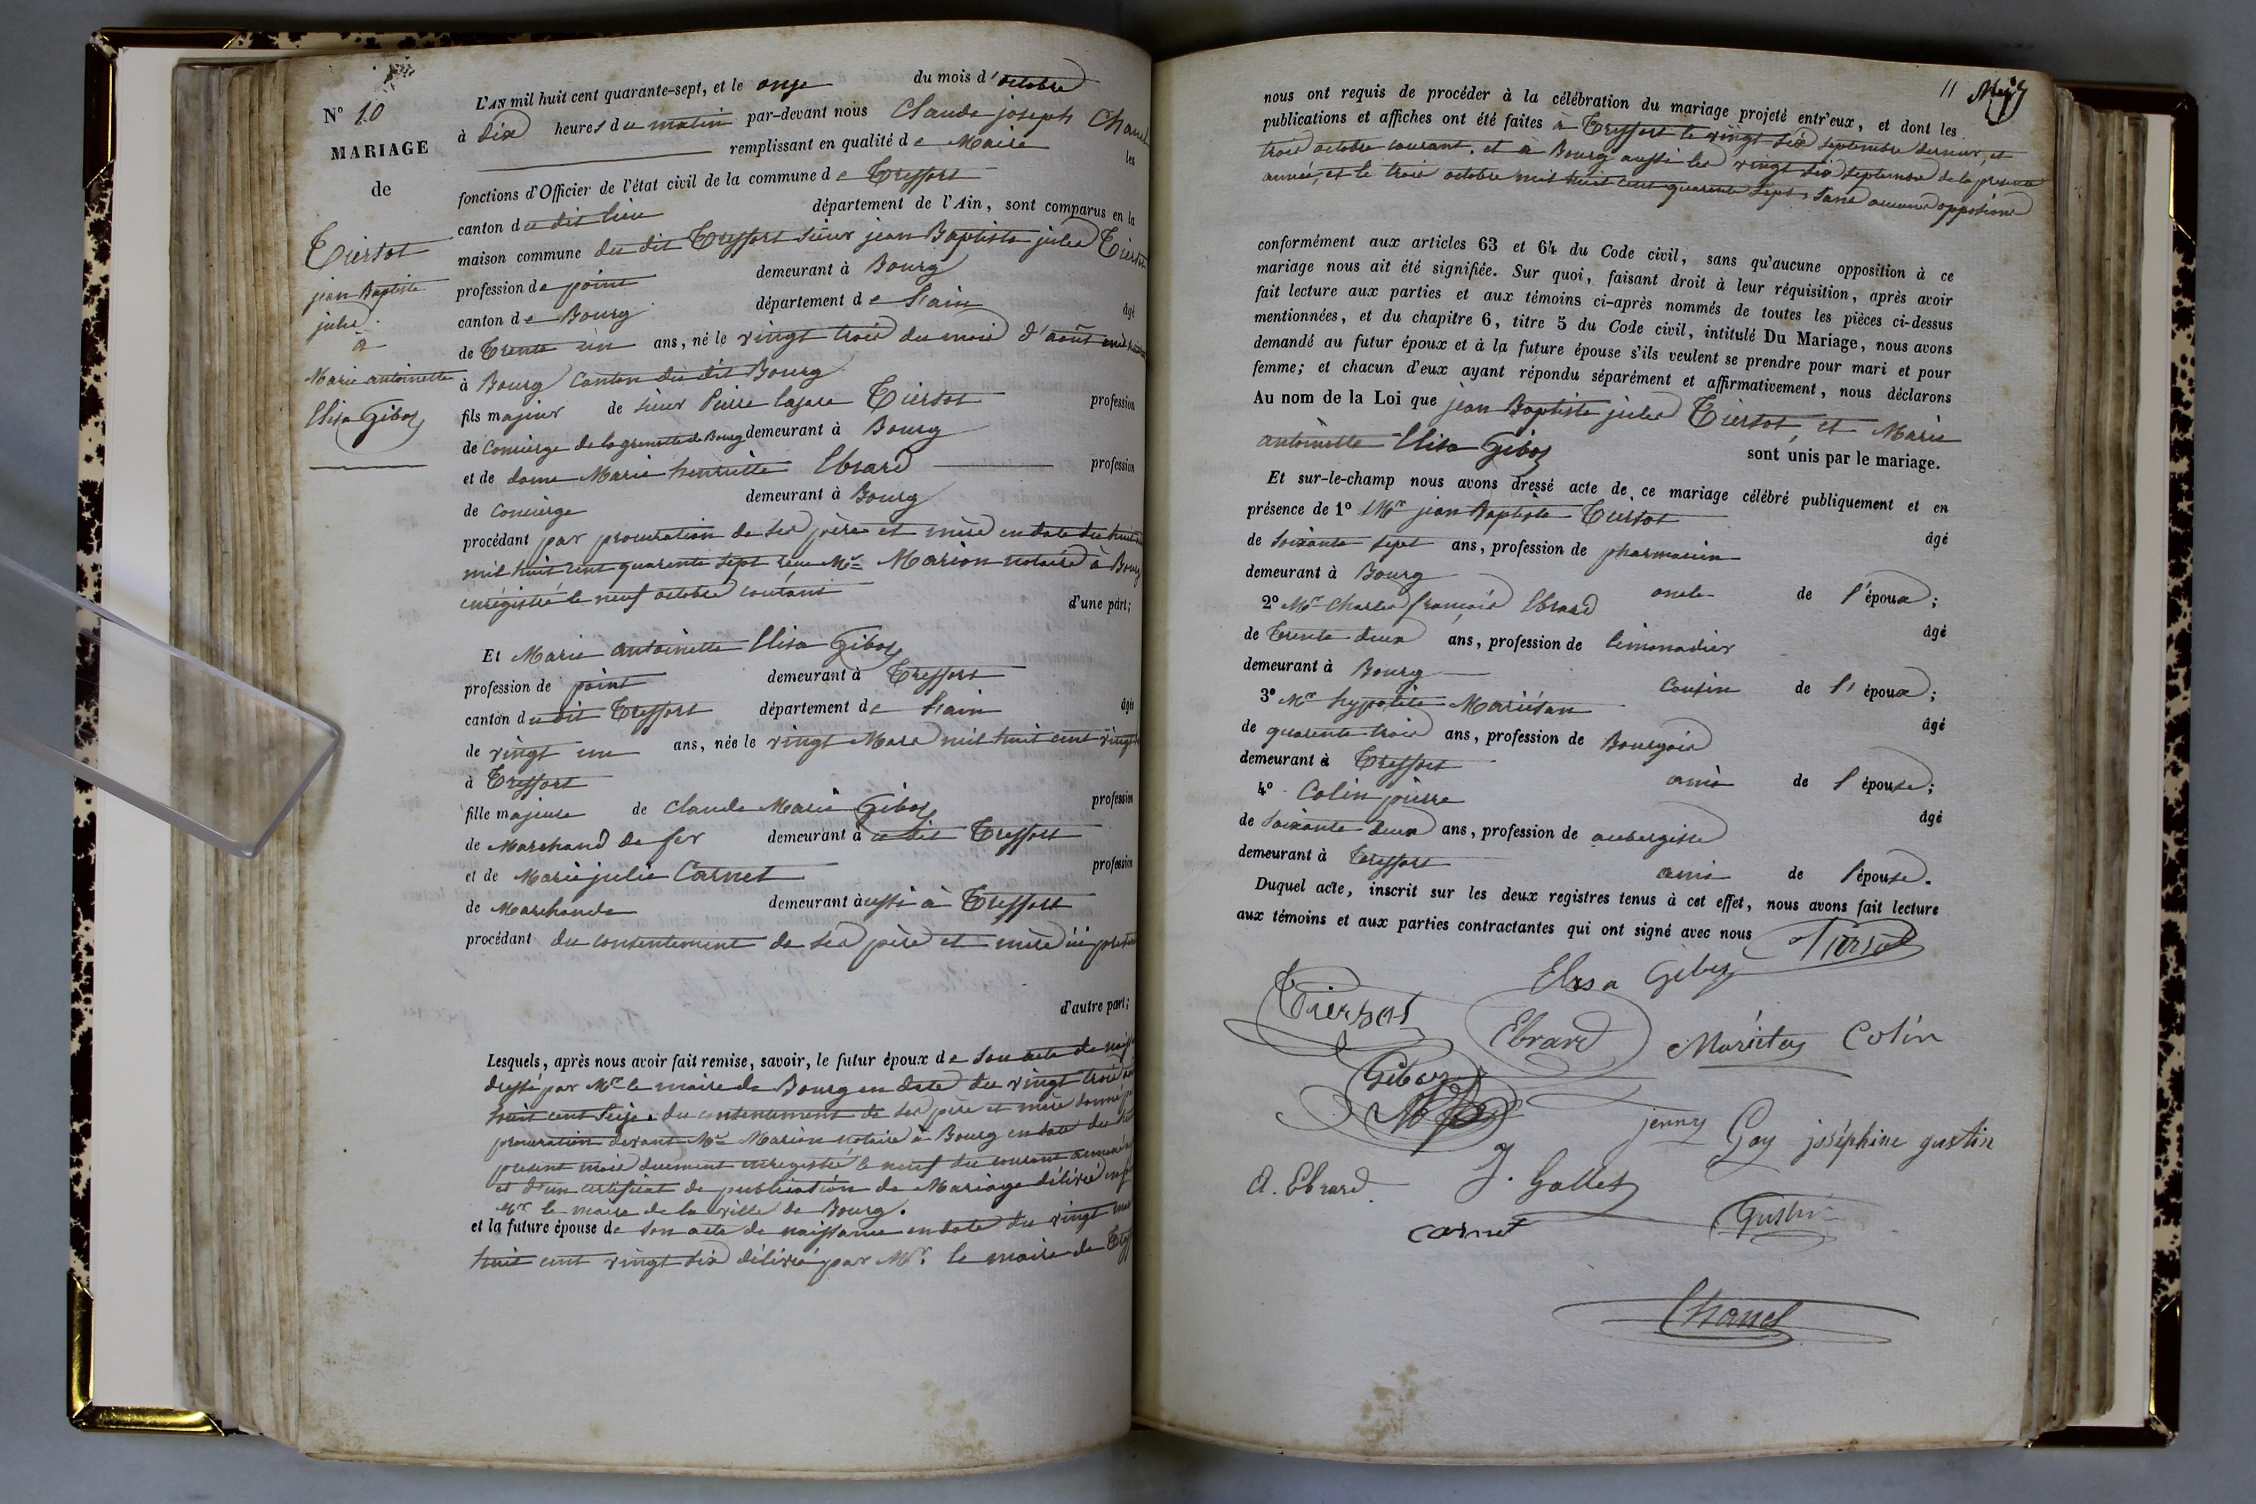 N° 10
MARIAGE
de
Tiersot
jean Baptiste
jules
à
Marie antoinette
Elisa Giboz
L'AN mil huit cent quarante-sept, et le onze du mois d'octobre
à dix heures du matin par-devant nous Claude joseph Chanel
remplissant en qualité de Maire les
fonctions d'Officier de l'état civil de la commune de Treffort
canton du dit lieu département de l'Ain, sont comparus en la
maison commune du dit Treffort sieur jean Baptiste jules Tiersot
profession de point demeurant à Bourg
canton de Bourg département de l'ain âgé
de Trente un ans, né le vingt trois du mois d'août mil huit
à Bourg Canton du dit Bourg
fils majeur de sieur Pierre lazare Tiersot profession
de Concierge de la grenette de Bourg demeurant à Bourg
et de dame Marie henriette Ebrard profession
de Concierge demeurant à Bourg
procédant par procuration de ses père et mère en date du huit
mil huit cent quarante sept reçue Me Marion notaire à Bourg
enregistré le neuf octobre courant
d'une part;
Et Marie antoinette Elisa Giboz
profession de point demeurant à Treffort
canton du dit Treffort département de l'ain âgée
de vingt un ans, née le vingt Mars mil huit cent vingt
à Treffort
fille majeure de Claude Marie Giboz profession
de Marchand de fer demeurant à ce dit Treffort
et de Marie julie Carnet profession
de Marchande demeurant aussi à Treffort
procédant du consentement de ses père et mère ici présents
d'autre part;
Lesquels, après nous avoir fait remise, savoir, le futur époux de son acte de
dressé par Mr le maire de Bourg en date du vingt trois
huit cent seize. du consentement de ses père et mère donné
procuration devant Me Marion notaire à Bourg en date du
présent mois duement enregistré le neuf du courant
et d'un certificat de publication de Mariage délivré
Mr le maire de la ville de Bourg.
et la future épouse de son acte de naissance en date du vingt
huit cent vingt six délivré par Mr. le maire de
11
nous ont requis de procéder à la célébration du mariage projeté entr'eux, et dont les
publications et affiches ont été faites à Treffort le vingt six septembre dernier, et
trois octobre courant, et à Bourg aussi les vingt six septembre de la présente
année, et le trois octobre mil huit cent quarante sept, sans aucune opposition
conformément aux articles 63 et 64 du Code civil, sans qu'aucune opposition à ce
mariage nous ait été signifiée. Sur quoi, faisant droit à leur réquisition, après avoir
fait lecture aux parties et aux témoins ci-après nommés de toutes les pièces ci-dessus
mentionnées, et du chapitre 6, titre 5 du Code civil, intitulé Du Mariage, nous avons
demandé au futur époux et à la future épouse s'ils veulent se prendre pour mari et pour
femme; et chacun d'eux ayant répondu séparément et affirmativement, nous déclarons
Au nom de la Loi que jean Baptiste jules Tiersot, et Marie
antoinette Elisa Giboz sont unis par le mariage.
Et sur-le-champ nous avons dressé acte de ce mariage célébré publiquement et en
présence de 1° Mr jean Baptiste Tiersot âgé
de soixante sept ans, profession de pharmacien
demeurant à Bourg oncle de l'époux;
2° Mr Charles françois Ebrard âgé
de Trente deux ans, profession de limonadier
demeurant à Bourg Cousin de l'époux;
3° Mr hypolite Mariétan âgé
de quarente trois ans, profession de Bourgois
demeurant à Treffort ami de l'épouse;
4° Colin pierre âgé
de soixante deux ans, profession de aubergiste
demeurant à Treffort ami de l'épouse.
Duquel acte, inscrit sur les deux registres tenus à cet effet, nous avons fait lecture
aux témoins et aux parties contractantes qui ont signé avec nous
Tiersot
Elisa Giboz
Tiersot
Ebrard
Mariétan
Colin
Giboz
jenny Goy
joséphine gustin
A. Ebrard
J. Gallet
Carnet
Gustin
Chanel